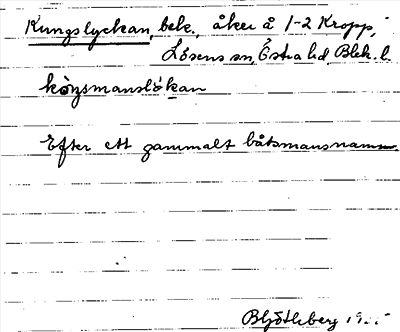 Kungslyckan, bek., åker å 1-2 Kropp,
Lösens sn, Östra hd, Blek. l.
kòŋsmanslỳkan
Efter ett gammalt båtsmansnamn.
19